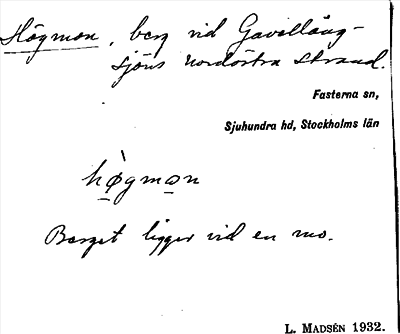 Högmon, berg vid Gavellång-
sjöns nordöstra strand.
Fasterna sn,
Sjuhundra hd, Stockholms län
hø̀gmon
Berget ligger vid en mo.
L. MADSÉN 1932.